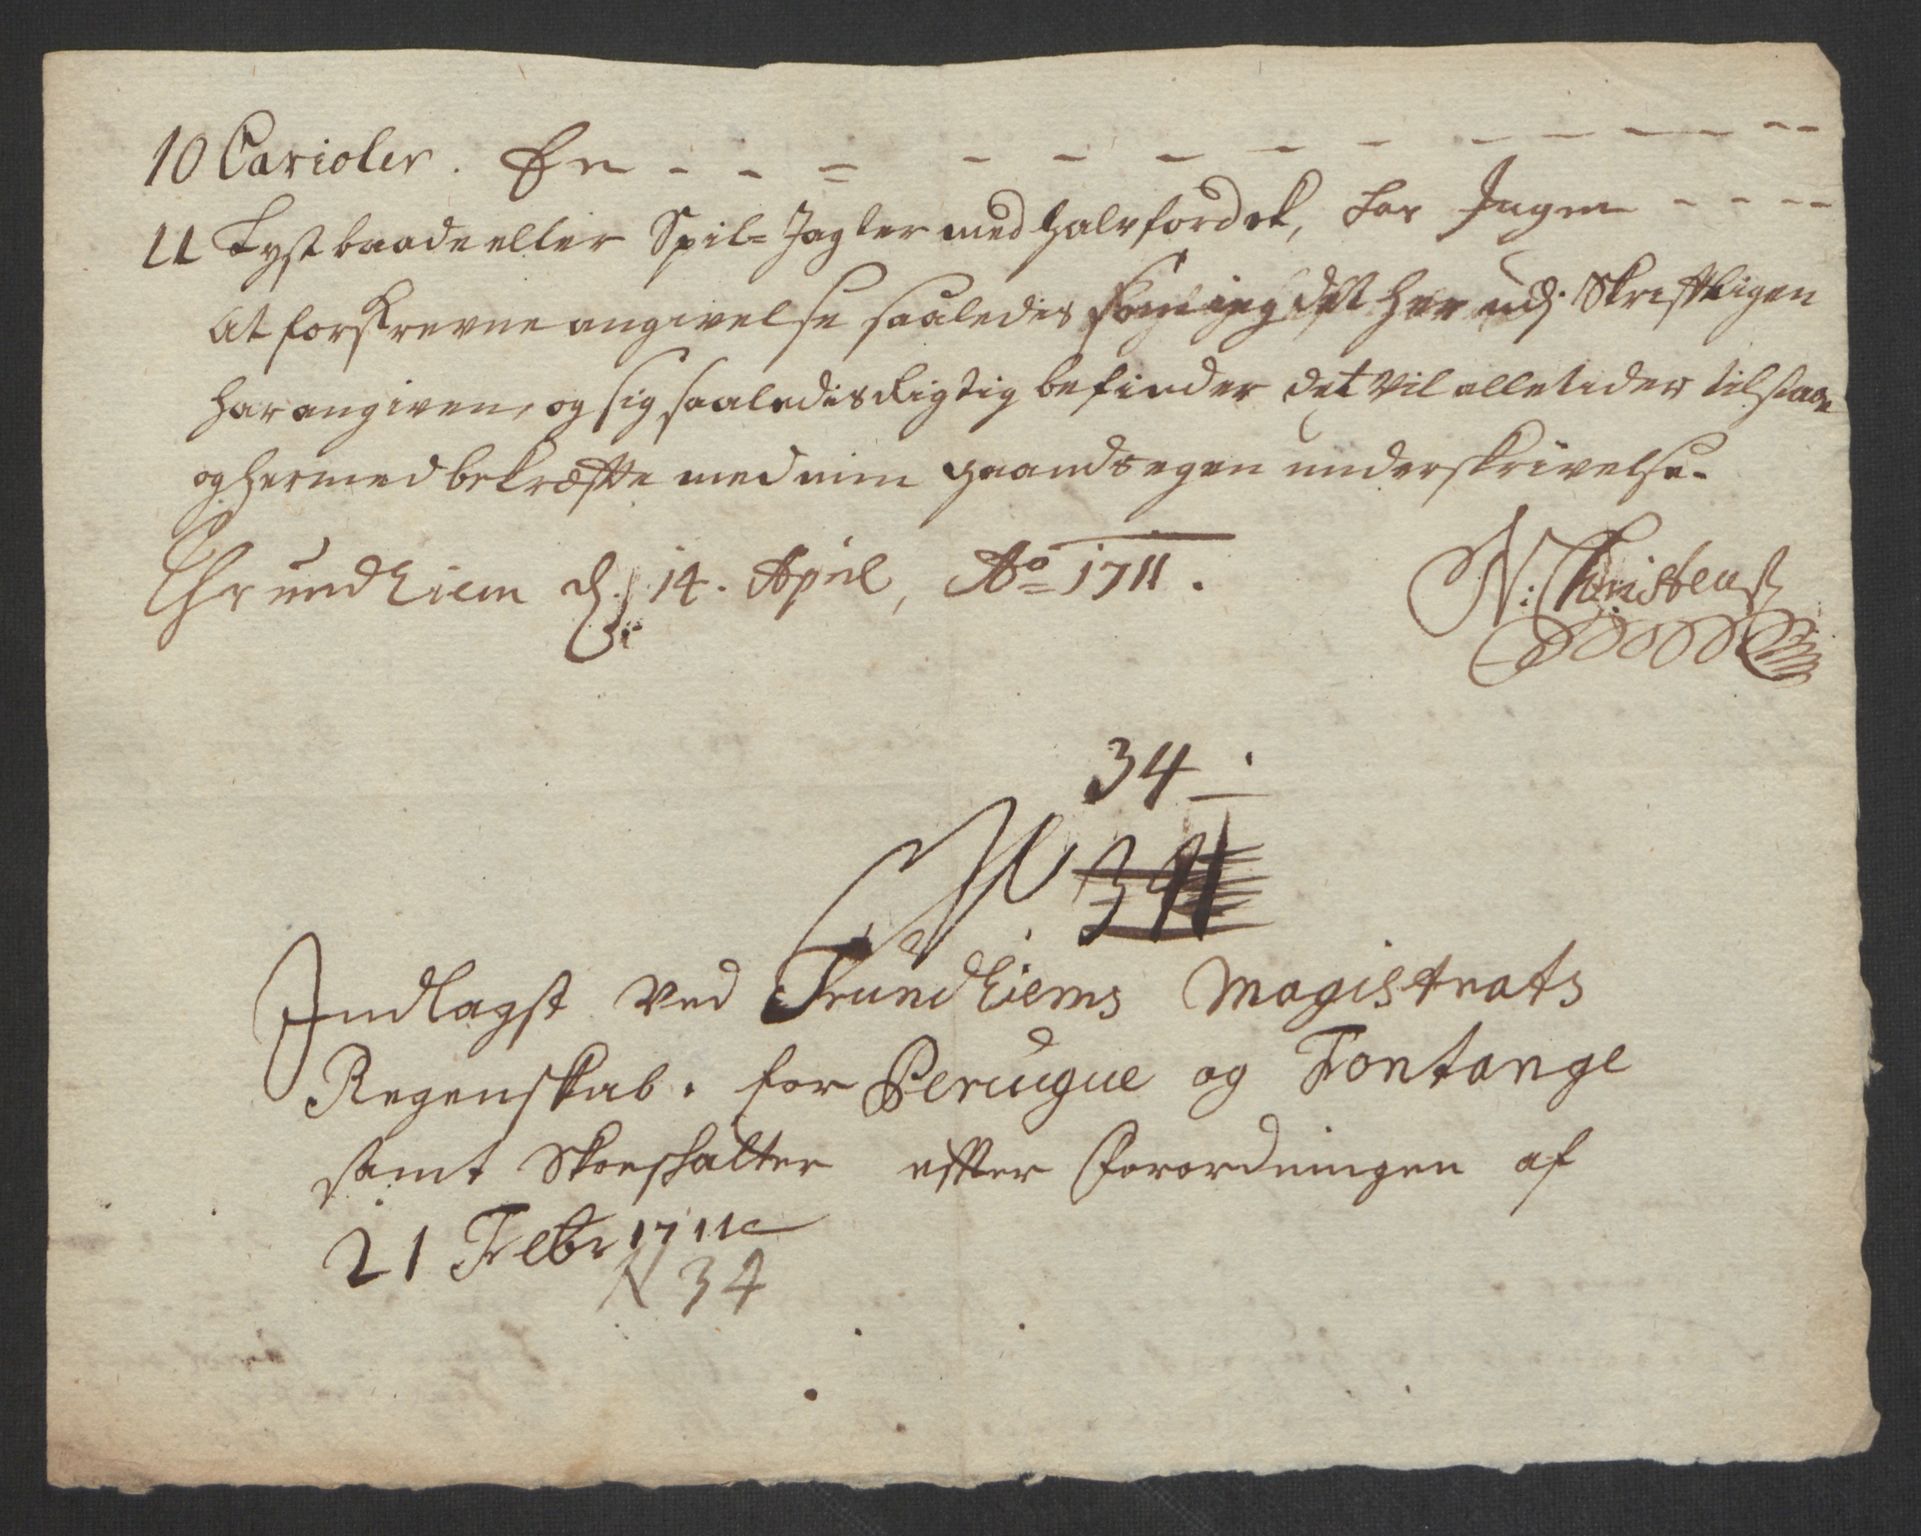 10 Carioler. En - - = - - - - - - - - - --
11 Lystbaade eller Spil=Jagter med halv fordek, har Ingen - - - --
At forskrevne angivelse saaledis som jeg det her udj Skrifftligen
har angiven, og sig saaledis Rigtig befinder det vil alle tider tilstaae
og hermed bekræffte med min haands egen underskrivelse.
Thrundhiem d. 14. April, Ao 1711.
N: Christens
34
No 341
Indlagt ved Trundhiems Magistrats
Regenskab. for Peruque og Fontange
samt Skoeskatter effter Forordningen af
21 Febr 1711
N 34